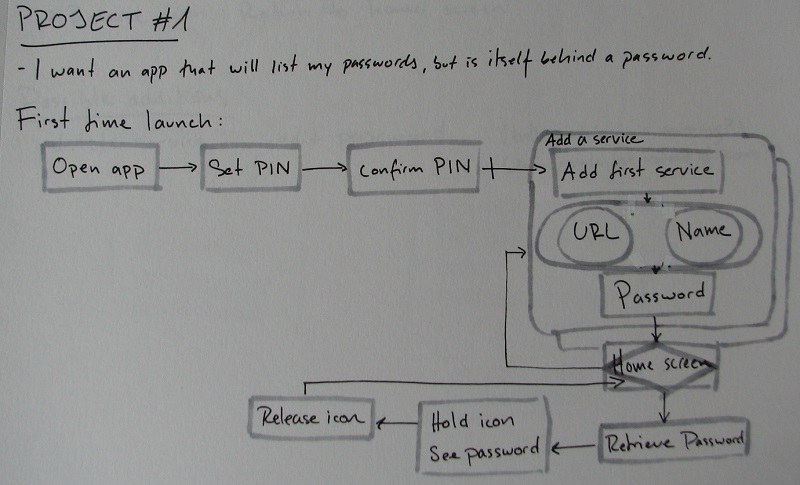 PROJECT #1
- I want an app that will list my passwords, but is itself behind a password.
First time launch:
Open app
Set PIN
Confirm PIN
Add a service
Add first service
URL
Name
Password
Home screen
Retrieve Password
Hold icon
See password
Release icon